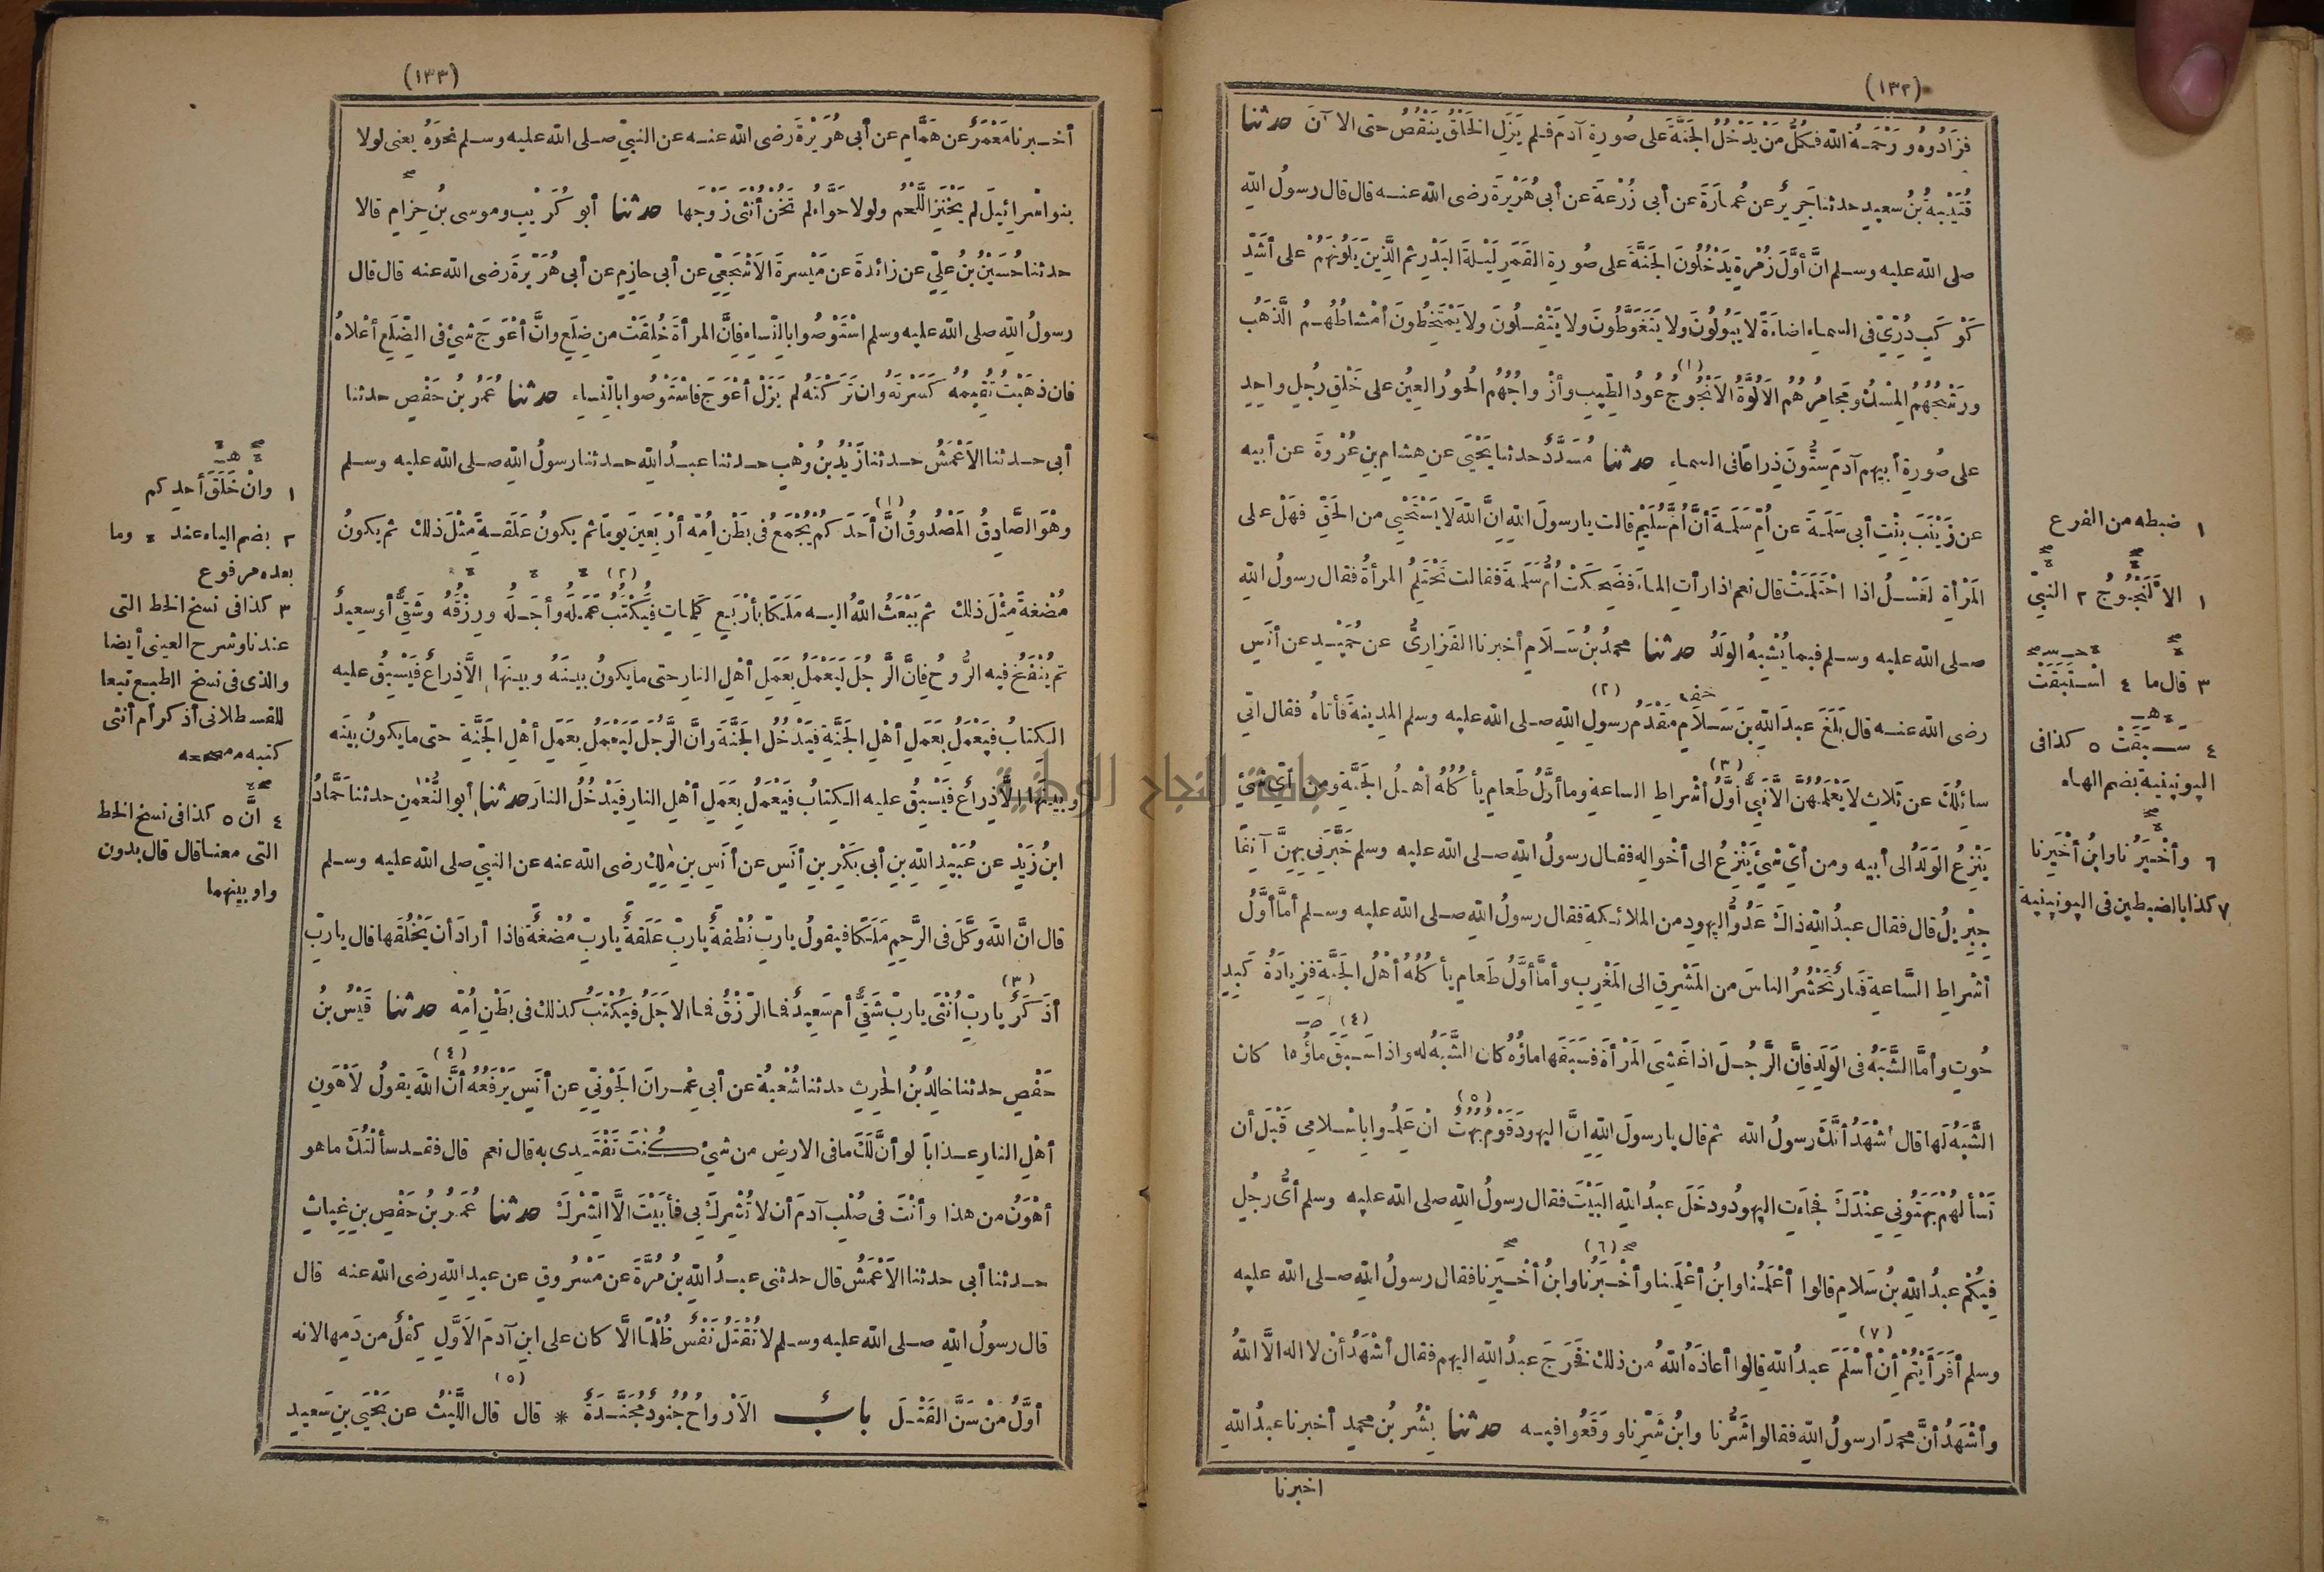 (١٣٢)
فَزَادُوهُ وَرَحْمَةُ الله فكُلُّ مَنْ يَدْخُلُ الجَنَّةَ على صُورةِ آدمَ فلم يَزَلِ الخَلْقُ يَنْقُصُ حتى الآنَ حدثنا
قُتَيْبةُ بنُ سعيدٍ حدثنا جَرِيرٌ عن عُمارَةَ عن أبى زُرْعةَ عن أبى هُرَيْرةَ رضى الله عنه قال قال رسولُ اللهِ
صلى الله عليه وسلم انَّ أوَّلَ زُمْرةٍ يَدْخُلُونَ الجَنَّةَ على صُورةِ القَمَرِ لَيْلةَ البَدْرِ ثم الَّذِينَ يَلُونَهُمْ على أشَدِّ
كَوْكَبٍ دُرِّيٍّ فى السماءِ اضاءَةً لا يَبُولُونَ ولا يَتَغَوَّطُونَ ولا يَتْفِلُونَ ولا يَمْتَخِطُونَ أمْشاطُهُمُ الذَّهَبُ
ورَشْحُهُمُ المِسْكُ ومَجامِرُهُمُ الاَلُوَّةُ (١) الاَنْجُوجُ عُودُ الطِّيبِ وأزْواجُهُمُ الحُورُ العِينُ على خَلْقِ رَجُلٍ واحِدٍ
على صُورةِ أبِيهِم آدمَ سِتُّونَ ذِراعًا فى السماءِ حدثنا مُسَدَّدٌ حدثنا يَحْيَى عن هِشامِ بنِ عُرْوةَ عن أبيه
عن زَيْنَبَ بِنْتِ أبى سَلَمةَ عن أُمِّ سَلَمةَ أنَّ أُمَّ سُلَيْمٍ قالت يا رسولَ اللهِ انَّ اللهَ لا يَسْتَحْيِى من الحَقِّ فهَلْ على
المَرْأةِ الغَسْلُ اذا احْتَلَمَتْ قال نعم اذا رأتِ الماءَ فضَحِكَتْ أُمُّ سَلَمةَ فقالت تَحْتَلِمُ المرأةُ فقال رسولُ اللهِ
صلى الله عليه وسلم فبما يُشْبِهُ الولَدُ حدثنا محمدُ بنُ سَلَامٍ أخبرنا الفَزارِىُّ عن حُمَيْدٍ عن أنَسٍ
رضى الله عنه قال بَلَغَ عبدَ اللهِ بنَ سَلَامٍ مَقْدَمُ رسولِ اللهِ (٢) صلى الله عليه وسلم المدينةَ فأتاهُ فقال انّى
سائِلُكَ عن ثَلاثٍ لا يَعْلَمُهُنَّ الَّا نَبِىٌّ (٣) أوَّلُ أشْراطِ الساعةِ وما أوَّلُ طَعامٍ يأكُلُهُ أهْلُ الجَنَّةِ ومن أىِّ شىْءٍ
يَنْزِعُ الوَلَدُ الى أبيه ومن أىِّ شىْءٍ يَنْزِعُ الى أخْوالِهِ فقال رسولُ اللهِ صلى الله عليه وسلم خَبَّرَنِى بِهِنَّ آنِفًا
جِبْرِيلُ قال فقال عبدُ اللهِ ذاكَ عَدُوُّ اليهودِ من الملائكةِ فقال رسولُ اللهِ صلى الله عليه وسلم أمَّا أوَّلُ
أشْراطِ السَّاعةِ فنارٌ تَحْشُرُ الناسَ من المَشْرِقِ الى المَغْرِبِ وأمَّا أوَّلُ طَعامٍ يأكُلُهُ أهْلُ الجَنَّةِ فزِيادَةُ كَبِدِ
حُوتٍ وأمَّا الشَّبَهُ فى الوَلَدِ فانَّ الرَّجُلَ اذا غَشِىَ المَرْأةَ فسَبَقَها ماؤُهُ كان الشَّبَهُ له واذا (٤) سَبَقَ ماؤُها كان
الشَّبَهُ لَها قال أشْهَدُ أنَّكَ رسولُ اللهِ ثم قال يا رسولَ اللهِ انَّ اليهودَ قَوْمٌ بُهُتٌ (٥) انْ عَلِمُوا باسْلامِى قَبْلَ أن
تَسْألَهُمْ بَهَتُونِى عِنْدَكَ فجاءَتِ اليهودُ ودخَلَ عبدُ اللهِ البَيْتَ فقال رسولُ اللهِ صلى الله عليه وسلم أىُّ رجُلٍ
فِيكُمْ عبدُ اللهِ بنُ سَلامٍ قالوا أعْلَمُنا وابنُ أعْلَمِنا (٦) وأخْبَرُنا وابنُ أخْيَرِنا فقال رسولُ اللهِ صلى الله عليه
وسلم أفَرَأيْتُمْ (٧) أنْ أسْلَمَ عبدُ اللهِ قالوا أعاذَهُ اللهُ من ذلك فخَرَجَ عبدُ اللهِ اليهم فقال أشْهَدُ أنْ لا اله الَّا اللهُ
وأشْهَدُ أنَّ محمدًا رسولُ اللهِ فقالوا شَرُّنا وابنُ شَرِّنا ووَقَعُوا فيه حدثنا بِشْرُ بنُ محمدٍ أخبرنا عبدُ اللهِ
اخبرنا
١ ضبطه من الفرع
١ الاَلَنْجُوجُ ٢ النبىّ
٣ قال ما ٤ اسْتَبَقَتْ
٤ سَبَقَتْ ٥ كذا فى
اليونينية بضم الهاء
٦ وأخْيَرُنا وابنُ أخْيَرِنا
٧ كذا بالضبطين فى اليونينية
(١٣٣)
أخبرنا مَعْمَرٌ عن هَمَّامٍ عن أبى هُرَيْرةَ رضى الله عنه عن النبىّ صلى الله عليه وسلم نحوَهُ يعنى لولا
بنو اسْرائيلَ لم يَخْنَزِ اللَّحْمُ ولولا حَوَّاءُ لم تَخُنْ أُنْثَى زَوْجَها حدثنا أبو كُرَيْبٍ وموسى بنُ حِزامٍ قالا
حدثنا حُسَيْنُ بنُ عَلِىٍّ عن زائدةَ عن مَيْسرةَ الاَشْجَعِىِّ عن أبى حازِمٍ عن أبى هُرَيْرةَ رضى الله عنه قال قال
رسولُ اللهِ صلى الله عليه وسلم اسْتَوْصُوا بالنِّساءِ فانَّ المرأةَ خُلِقَتْ من ضِلَعٍ وانَّ أعْوَجَ شىْءٍ فى الضِّلَعِ أعْلاهُ
فان ذهَبْتَ تُقِيمُهُ كَسَرْتَهُ وان تَرَكْتَهُ لم يَزَلْ أعْوَجَ فاسْتَوْصُوا بالنِّساءِ حدثنا عُمَرُ بنُ حَفْصٍ حدثنا
أبى حدثنا الاَعْمَشُ حدثنا زَيْدُ بنُ وهْبٍ حدثنا عبدُ اللهِ حدثنا رسولُ اللهِ صلى الله عليه وسلم
وهْوَ الصَّادِقُ المَصْدُوقُ (١) انَّ أحَدَكُمْ يُجْمَعُ فى بَطْنِ أُمِّهِ أرْبَعِينَ يومًا ثم يكونُ عَلَقةً مِثْلَ ذلك ثم يكونُ
مُضْغةً مِثْلَ ذلك ثم يَبْعَثُ اللهُ اليه مَلَكًا بأرْبَعِ كَلِماتٍ (٢) فيُكْتَبُ عَمَلُهُ وأجَلُهُ ورِزْقُهُ وشَقِىٌّ أو سعيدٌ
ثم يُنْفَخُ فيه الرُّوحُ فانَّ الرَّجُلَ لَيَعْمَلُ بعَمَلِ أهْلِ النارِ حتى ما يكونُ بينَهُ وبينَها الَّا ذِراعٌ فيَسْبِقُ عليه
الكِتابُ فيَعْمَلُ بعَمَلِ أهْلِ الجَنَّةِ فيَدْخُلُ الجَنَّةَ وانَّ الرَّجُلَ لَيَعْمَلُ بعَمَلِ أهْلِ الجَنَّةِ حتى ما يكونُ بينَه
وبينَها الَّا ذِراعٌ فيَسْبِقُ عليه الكتابُ فيَعْمَلُ بعَمَلِ أهْلِ النارِ فيَدْخُلُ النارَ حدثنا أبو النُّعْمٰنِ حدثنا حَمَّادُ
ابنُ زَيْدٍ عن عُبَيْدِ اللهِ بنِ أبى بَكْرِ بنِ أنَسٍ عن أنَسِ بنِ مٰلِكٍ رضى الله عنه عن النبىّ صلى الله عليه وسلم
قال انَّ اللهَ وَكَّلَ فى الرَّحِمِ مَلَكًا فيقولُ يارَبِّ نُطْفةٌ يارَبِّ عَلَقةٌ يارَبِّ مُضْغةٌ فاذا أرادَ أن يَخْلُقَها قال يارَبِّ
(٣) أذَكَرٌ يارَبِّ أُنْثَى يارَبِّ شَقِىٌّ أم سَعِيدٌ فما الرِّزْقُ فما الاَجَلُ فيُكْتَبُ كذلك فى بَطْنِ أُمِّهِ حدثنا قَيْسُ بنُ
حَفْصٍ حدثنا خالِدُ بنُ الحٰرِثِ حدثنا شُعْبةُ عن أبى عِمْرانَ الجَوْنِىِّ عن أنَسٍ يَرْفَعُهُ (٤) أنَّ اللهَ يقولُ لاَهْوَنِ
أهْلِ النارِ عذابًا لو أنَّ لَكَ ما فى الارضِ من شىْءٍ كُنْتَ تَفْتَدِى به قال نعم قال فقد سألْتُكَ ما هو
أهْوَنُ من هذا وأنْتَ فى صُلْبِ آدمَ أن لا تُشْرِكَ بى فأبَيْتَ الَّا الشِّرْكَ حدثنا عُمَرُ بنُ حَفْصِ بنِ غِياثٍ
حدثنا أبى حدثنا الاَعْمَشُ قال حدثنى عبدُ اللهِ بنُ مُرَّةَ عن مَسْرُوقٍ عن عبدِ اللهِ رضى الله عنه قال
قال رسولُ اللهِ صلى الله عليه وسلم لا تُقْتَلُ نَفْسٌ ظُلْمًا الَّا كان على ابنِ آدمَ الاَوَّلِ كِفْلٌ من دَمِها لانه
أوَّلُ مَنْ سَنَّ القَتْلَ بابٌ الاَرْواحُ جُنُودٌ مُجَنَّدَةٌ * قال (٥) قال اللَّيْثُ عن يَحْيَى بنِ سَعِيدٍ
١ وانْ خَلْقَ أحدِكم
٢ بضم الياء عند وما
بعده مرفوع
٣ كذا فى نسخ الخط التى
عندنا وشرح العينى أيضا
والذى فى نسخ الطبع تبعا
للقسطلانى أذكر أم أنثى
كتبه مصححه
٤ انَّ ٥ كذا فى نسخ الخط
التى معنا قال قال بدون
واو بينهما
جامعة النجاح الوطنية